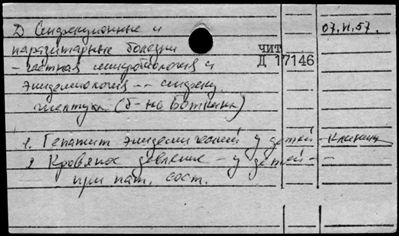 Д Инфекционные и
паразитарные болезни
- частная микробиология и
эпидемиология -- инфекц.
желтуха (б-нь Боткина)
чит
Д 17146
07.VI.57.
1. Гепатит эпидемический у детей - клиника
2 Кровяное давление - у детей -
при пат. сост.